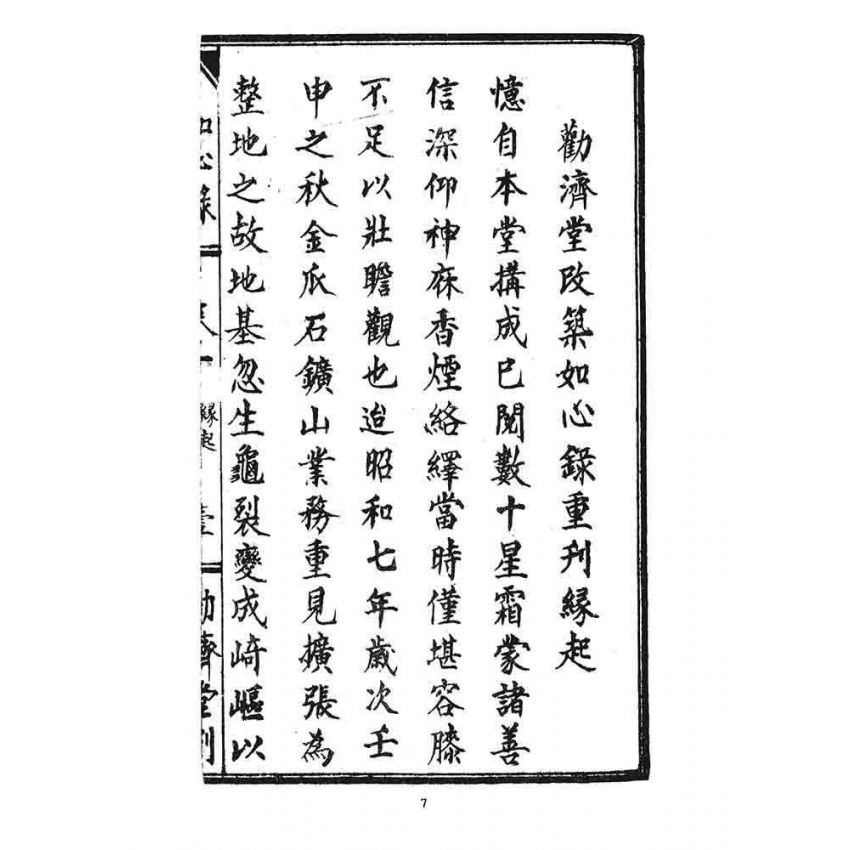 勸濟堂改築如心錄重刋緣起
憶自本堂搆成已閱數十星霜蒙諸善
信深仰神庥香煙絡繹當時僅堪容膝
不足以壯瞻觀也迨昭和七年歲次壬
申之秋金瓜石鑛山業務重見擴張為
整地之故地基忽生龜裂變成崎嶇以
如心錄
緣起
壹
勸濟堂刋
7